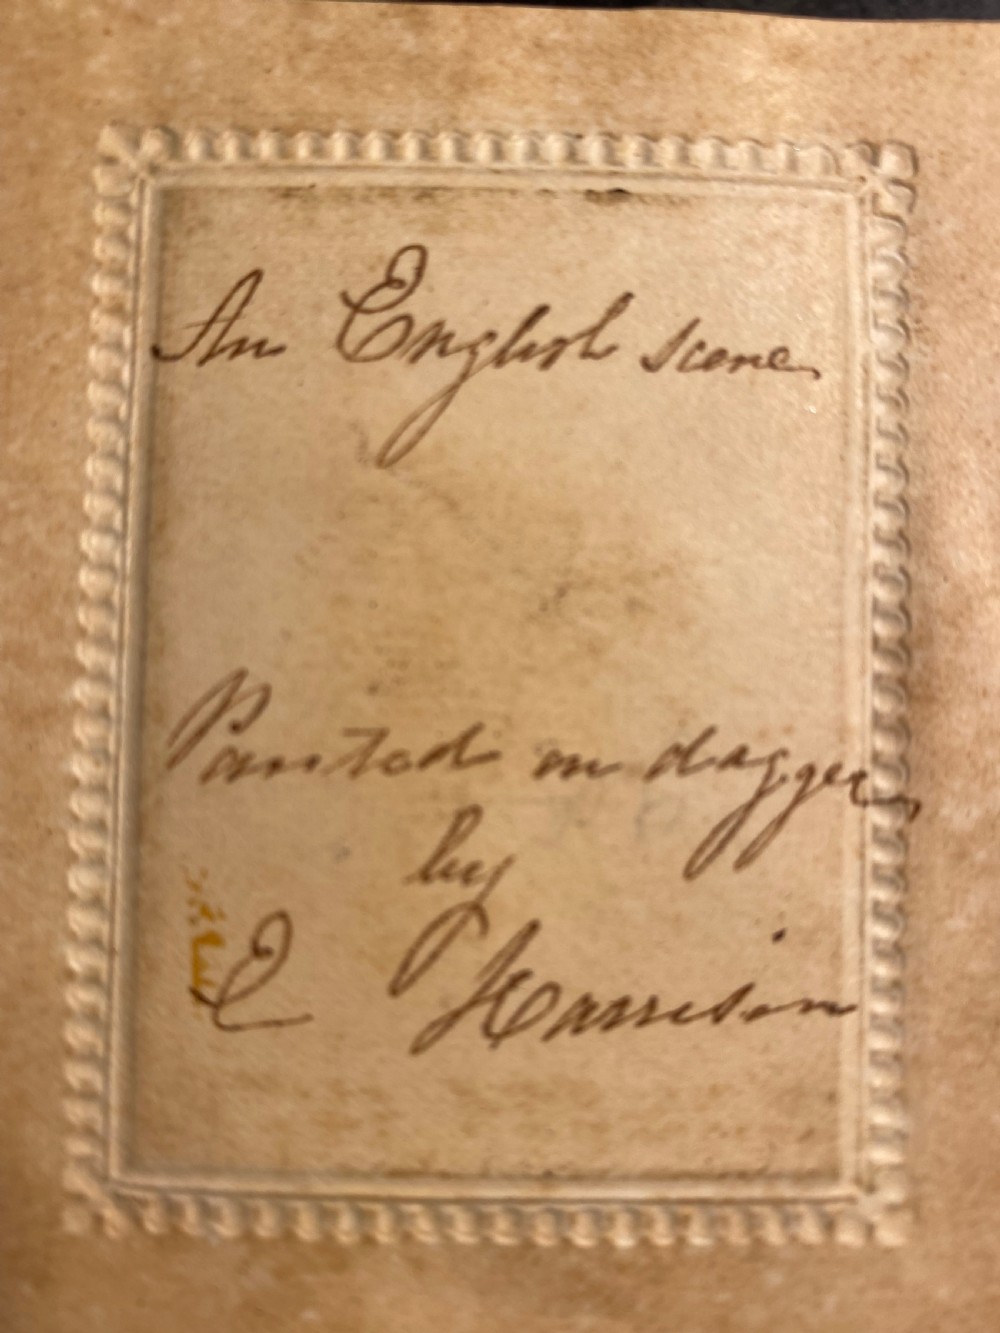 An English scene
Painted on dagger
by
E Harrison